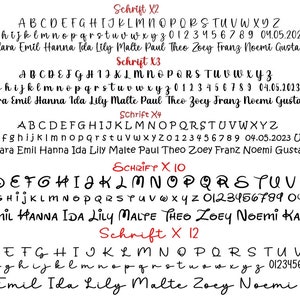 Schrift X2
A B C D E F G H I J K L M N O P Q R S T U V W X Y Z
f g h i j k l m n o p q r s t u v w x y z 0 1 2 3 4 5 6 7 8 9 04.05.202
ara Emil Hanna Ida Lily Malte Paul Theo Zoey Franz Noemi Gusta
Schrift X3
A B C D E F G H I J K L M N O P Q R S T U V W X Y Z
g h i j k l m n o p q r s t u v w x y z 0 1 2 3 4 5 6 7 8 9 04.05.202
ara Emil Hanna Ida Lily Malte Paul Theo Zoey Franz Noemi Gust
Schrift X4
A B C D E F G H I J K L M N O P Q R S T U V W X Y Z
f g h i j k l m n o p q r s t u v w x y z 0 1 2 3 4 5 6 7 8 9 04.05.2023
ara Emil Hanna Ida Lily Malte Paul Theo Zoey Franz Noemi Gusta
Schrift X 10
D E F G H I J K L M N O P Q R S T U V
k l m n o p q r s t u v w x y z 0 1 2 3 4 5 6 7 8 9 04
mil Hanna Ida Lily Malte Theo Zoey Noemi Ka
Schrift X 12
E F G H I J K L M N O P Q R S T U V
g h i j k l m n o p q r s t u v w x y z 0123456
Emil Ida Lily Malte Zoey Noemi